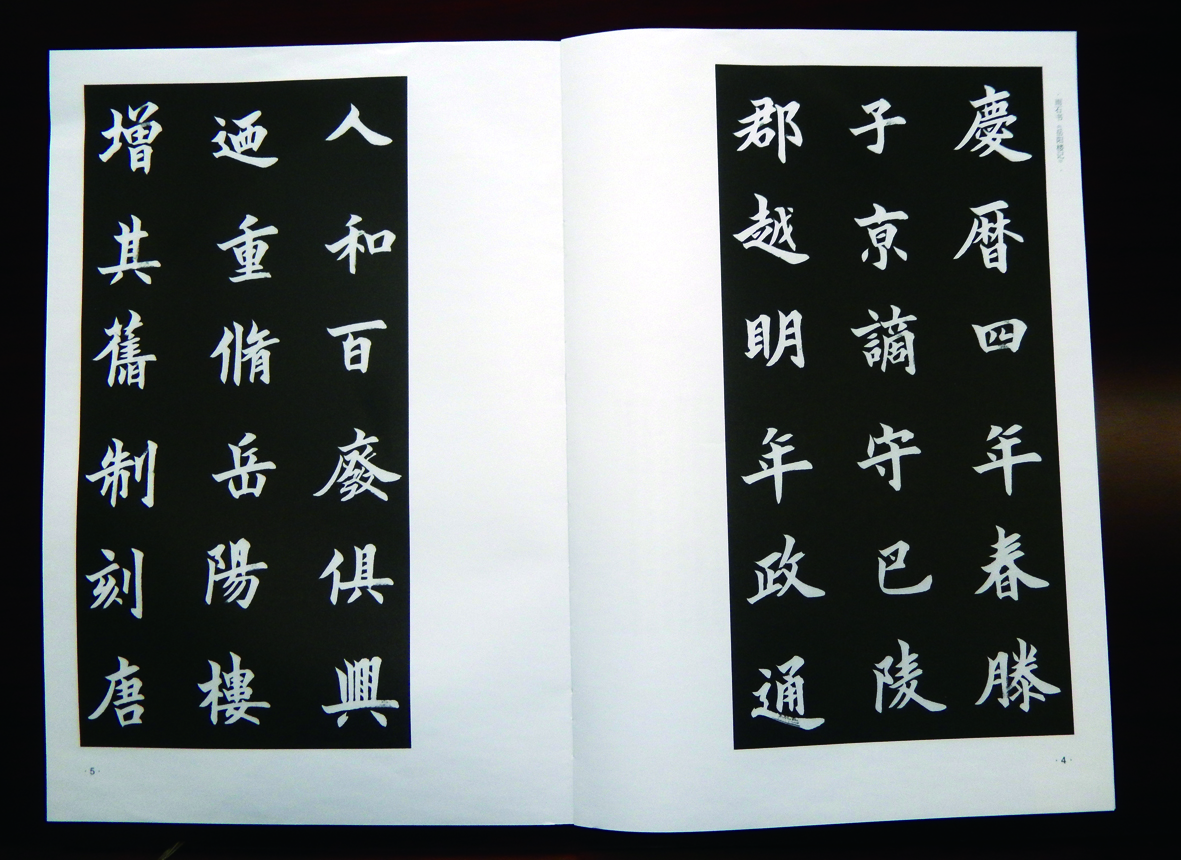 慶暦四年春滕
子京謫守巴陵
郡越明年政通
人和百廢俱興
迺重脩岳陽樓
增其舊制刻唐
·4·
·5·